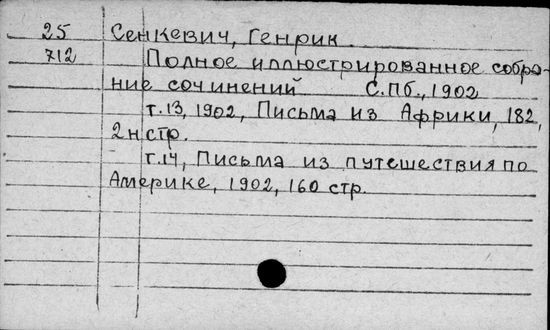 25 Сенкевич, Генрик.
712 Полное иллюстрированное собра-
ние сочинений С.Пб., 1902
т.13, 1902, Письма из Африки, 182,
2н стр.
т.14, Письма из путешествия по
Америке, 1902, 160 стр.